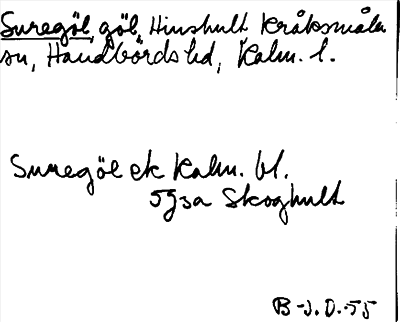 Suregöl, göl, Hinshult Kråksmåla
sn, Handbörds hd, Kalm. l.
Suregöl ek Kalm. bl.
5g3a Skoghult
B-J.O.-55